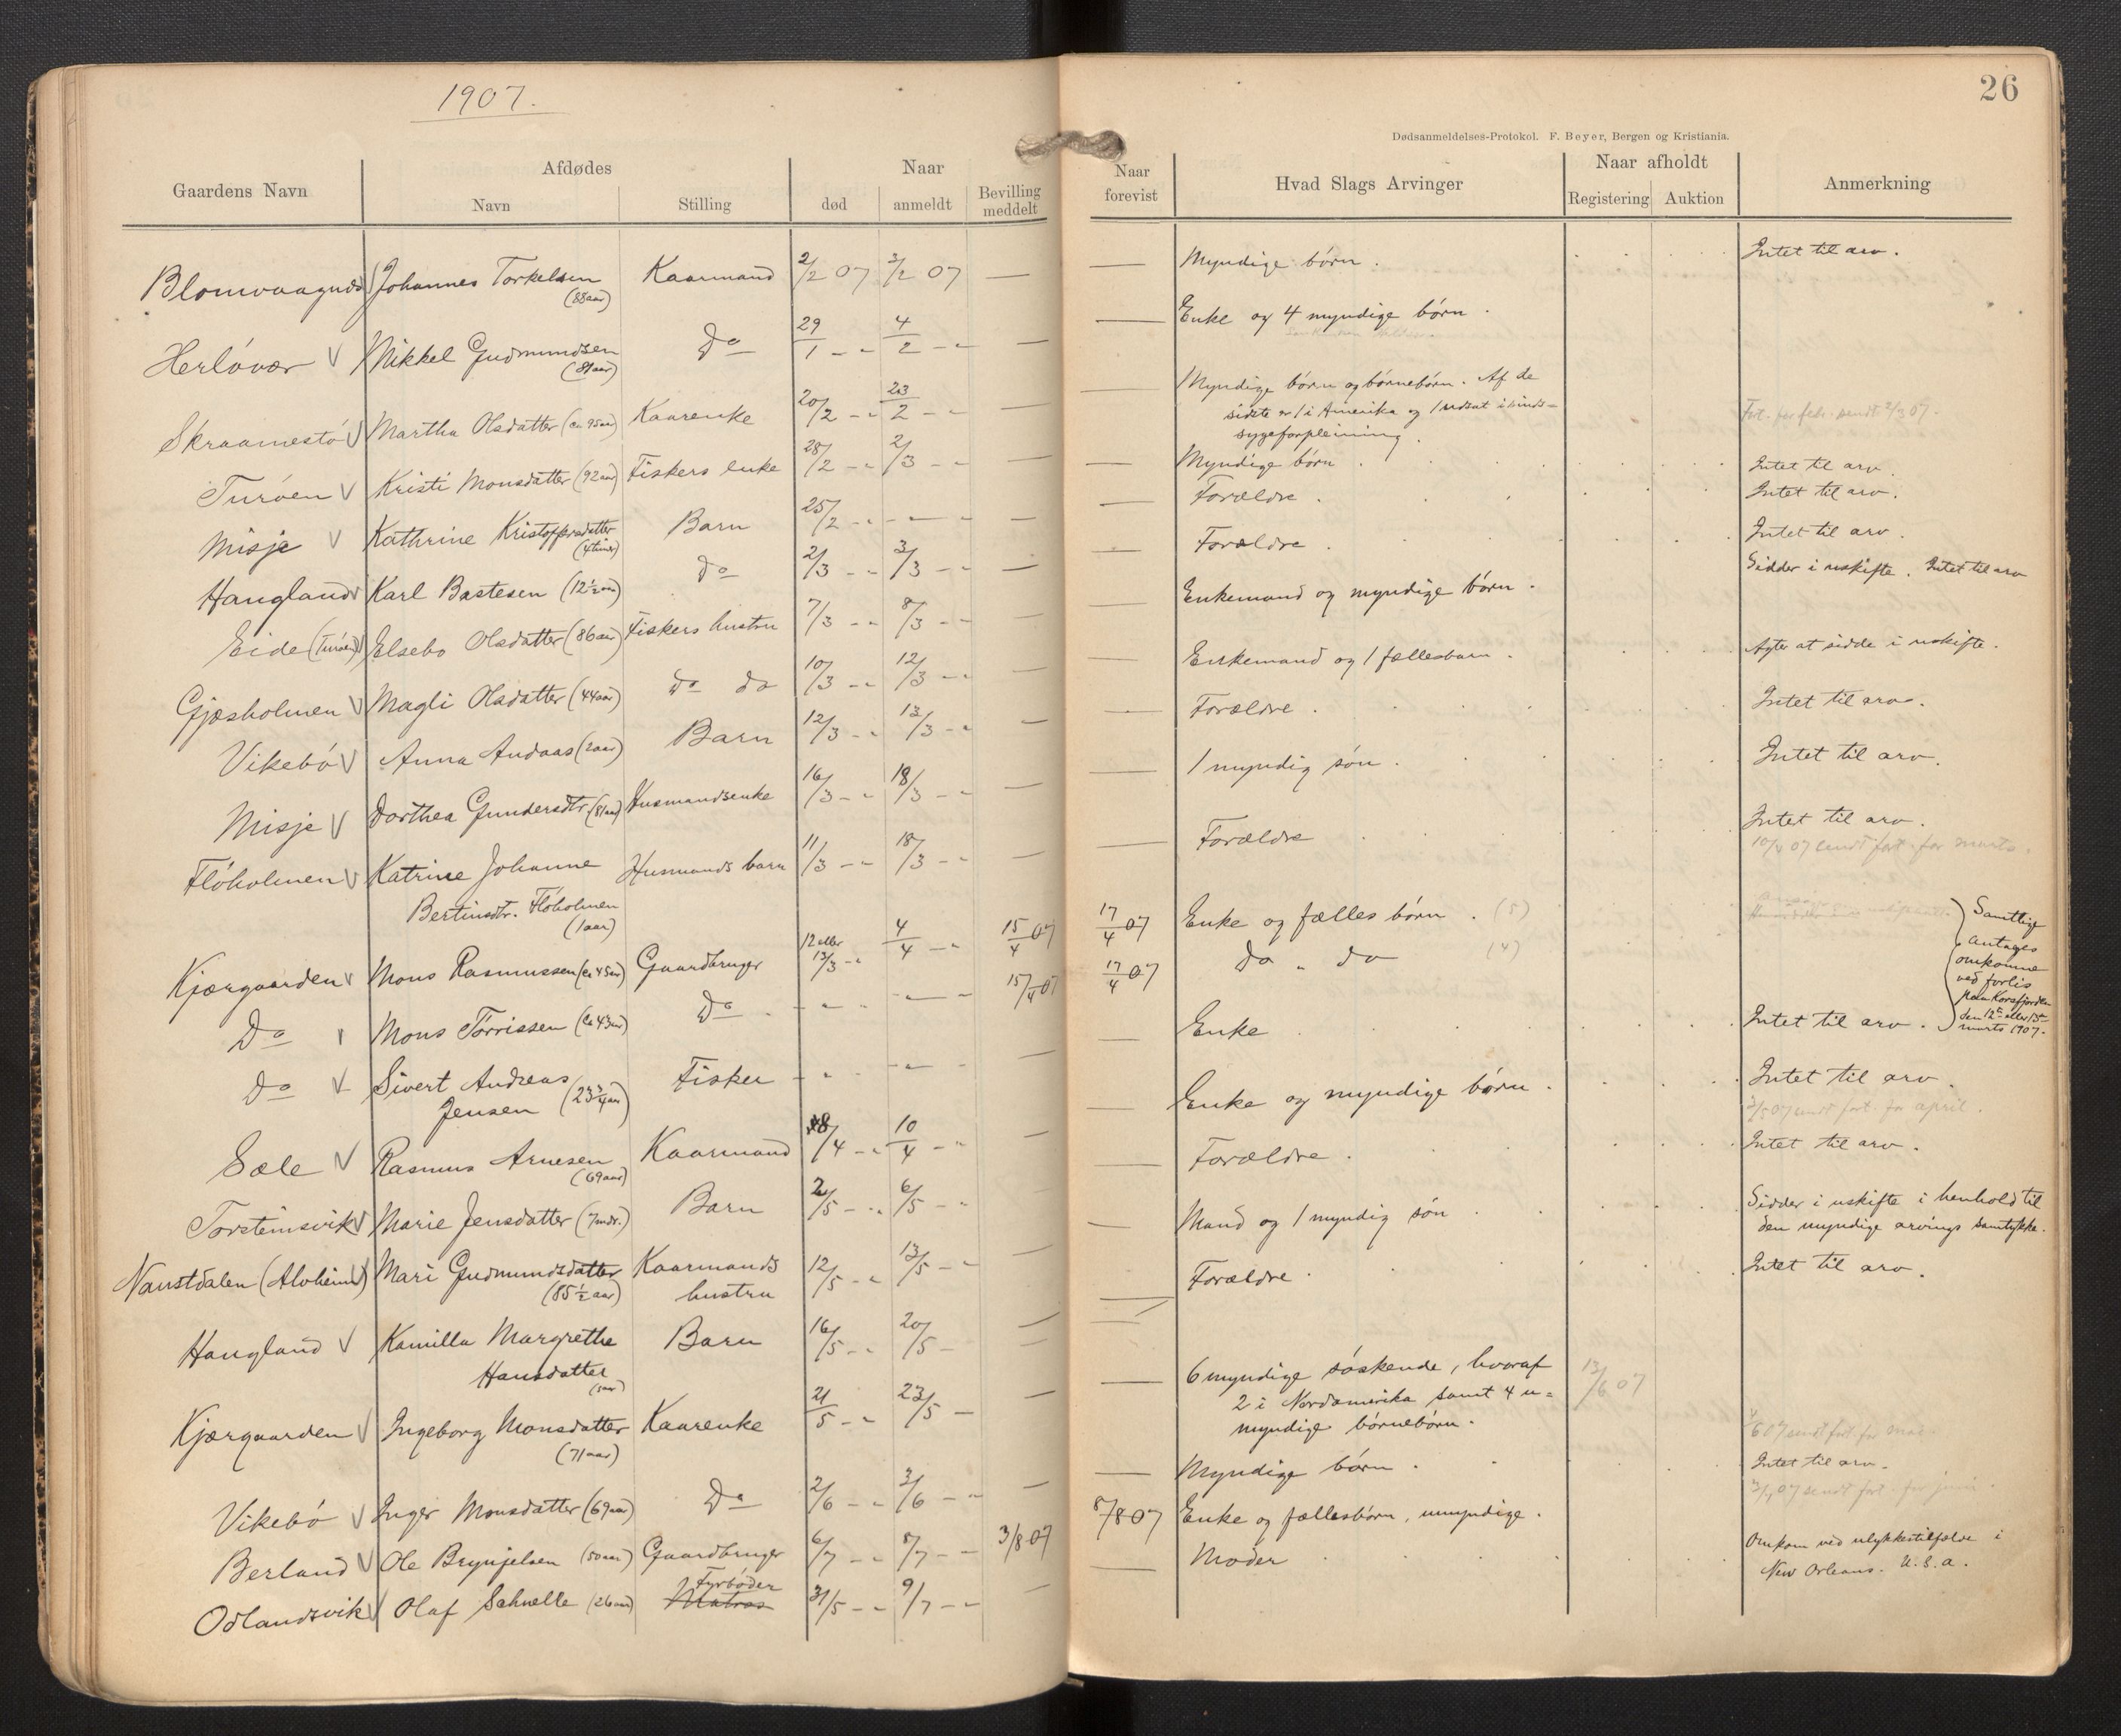 1907.
26
Dødsanmeldelses-Protokol. F. Beyer, Bergen og Kristiania.
Gaardens Navn Afdødes Naar
Navn Stilling død anmeldt Bevilling meddelt
Naar forevist Hvad Slags Arvinger Naar afholdt Anmerkning
Registering Auktion
Blomvaagnds Johannes Torkelsen Kaarmand 2/2 07 3/2 07 —
(88 aar)
Herløvær V Mikkel Gudmundsen Do 29/1 -"- 4/2 -"- —
(81 aar)
Skraamestø V Martha Olsdatter (ca 95 aar) Kaarenke 20/2 -"- 23/2 -"- —
Turøen V Kristi Monsdatter (92 aar) Fiskers enke 28/2 -"- 2/3 -"- —
Misje V Kathrine Kristoffersdatter Barn 25/2 -"- -"- —
(4 timer)
Haugland V Karl Bastesen (12 1/2 aar) do 2/3 -"- 3/3 -"- —
Eide (Turøen) V Elsebo Olsdatter (86 aar) Fiskers hustru 7/3 -"- 8/3 -"- —
Gjæsholmen V Magli Olsdatter (44 aar) Do do 10/3 -"- 12/3 -"-
Vikebø V Anna Andaas (2 aar) Barn 12/3 -"- 13/3 -"- —
Misje V Dorthea Gundersdtr. (81 aar) Husmandsenke 16/3 -"- 18/3 -"- —
Fløholmen V Katrine Johanne Husmands barn 11/3 -"- 18/3 -"- —
Bertinsdtr. Fløholmen
(1 aar)
Kjærgaarden V Mons Rasmussen (ca 45 aar) Gaardbruger 12 eller 13/3 -"- 4/4 -"- 15/4 07
Do V Mons Tørrissen (ca 43 aar) Do -"- -"- 15/4 07
Do V Sivert Andreas Fisker -"- -"- —
Jensen (23 3/4 aar)
Sæle V Rasmus Arnesen Kaarmand 8/4 -"- 10/4 -"- —
(69 aar)
Torsteinsvik V Marie Jensdatter (7 mdr.) Barn 2/5 -"- 6/5 -"-
Naustdalen (Alvheim) Mari Gudmundsdatter Kaarmands 12/5 -"- 13/5 -"- —
(85 1/2 aar) hustru
Haugland V Kamilla Margrethe Barn 16/5 -"- 20/5 - —
Hansdatter
Kjærgaarden V Ingeborg Monsdatter Kaarenke 21/5 -"- 23/5 — —
(71 aar)
Vikebø V Inger Monsdatter (69 aar) Do 2/6 -"- 3/6 -"- —
Berland V Ole Brynjelsen (50 aar) Gaardbruger 6/7 -"- 8/7 -"- 3/8 07
Fyrbøder
Odlandsvik V Olaf Schnelle (26 aar) Matros 31/5 -"- 9/7 -"- —
— Myndige børn. Intet til arv.
— Enke og 4 myndige børn.
— Myndige børn og børnebørn. Af de
sidste er 1 i Amerika og 1 udsat i sinds-
sygeforpleining.
Fort. for febr. sendt 2/3 07.
— Myndige børn. Intet til arv.
— Forældre. Intet til arv.
— Forældre. Intet til arv.
— Enkemand og myndige børn. Sidder i uskifte. Intet til arv
— Enkemand og 1 fællesbarn. Agter at sidde i uskifte.
— Forældre. Intet til arv.
— 1 myndig søn. Intet til arv.
— Forældre Intet til arv.
10/4 07 sendt fort. for marts.
17/4 07 Enke og fælles børn. (5)
17/4 07 Do " do (4)
Samtlige
antages
omkomne
ved forlis
paa Korsfjorden
den 12te eller 13de
marts 1907.
— Enke Intet til arv.
— Enke og myndige børn. Intet til arv.
3/5 07 sendt fort. for april.
— Forældre. Intet til arv.
— Mand og 1 myndig søn. Sidder i uskifte i henhold til
den myndige arvings samtykke.
— Forældre. Intet til arv.
— 6 myndige søskende, hvoraf 13/6 07
2 i Nordamerika samt 4 u-
myndige børnebørn.
/6 07 sendt fort. for mai.
— Myndige børn. Intet til arv.
3/7 07 sendt fort. for juni.
8/8 07 Enke og fællesbørn, umyndige.
— Moder Omkom ved ulykkestilfælde i
New Orleans. U.S.A.